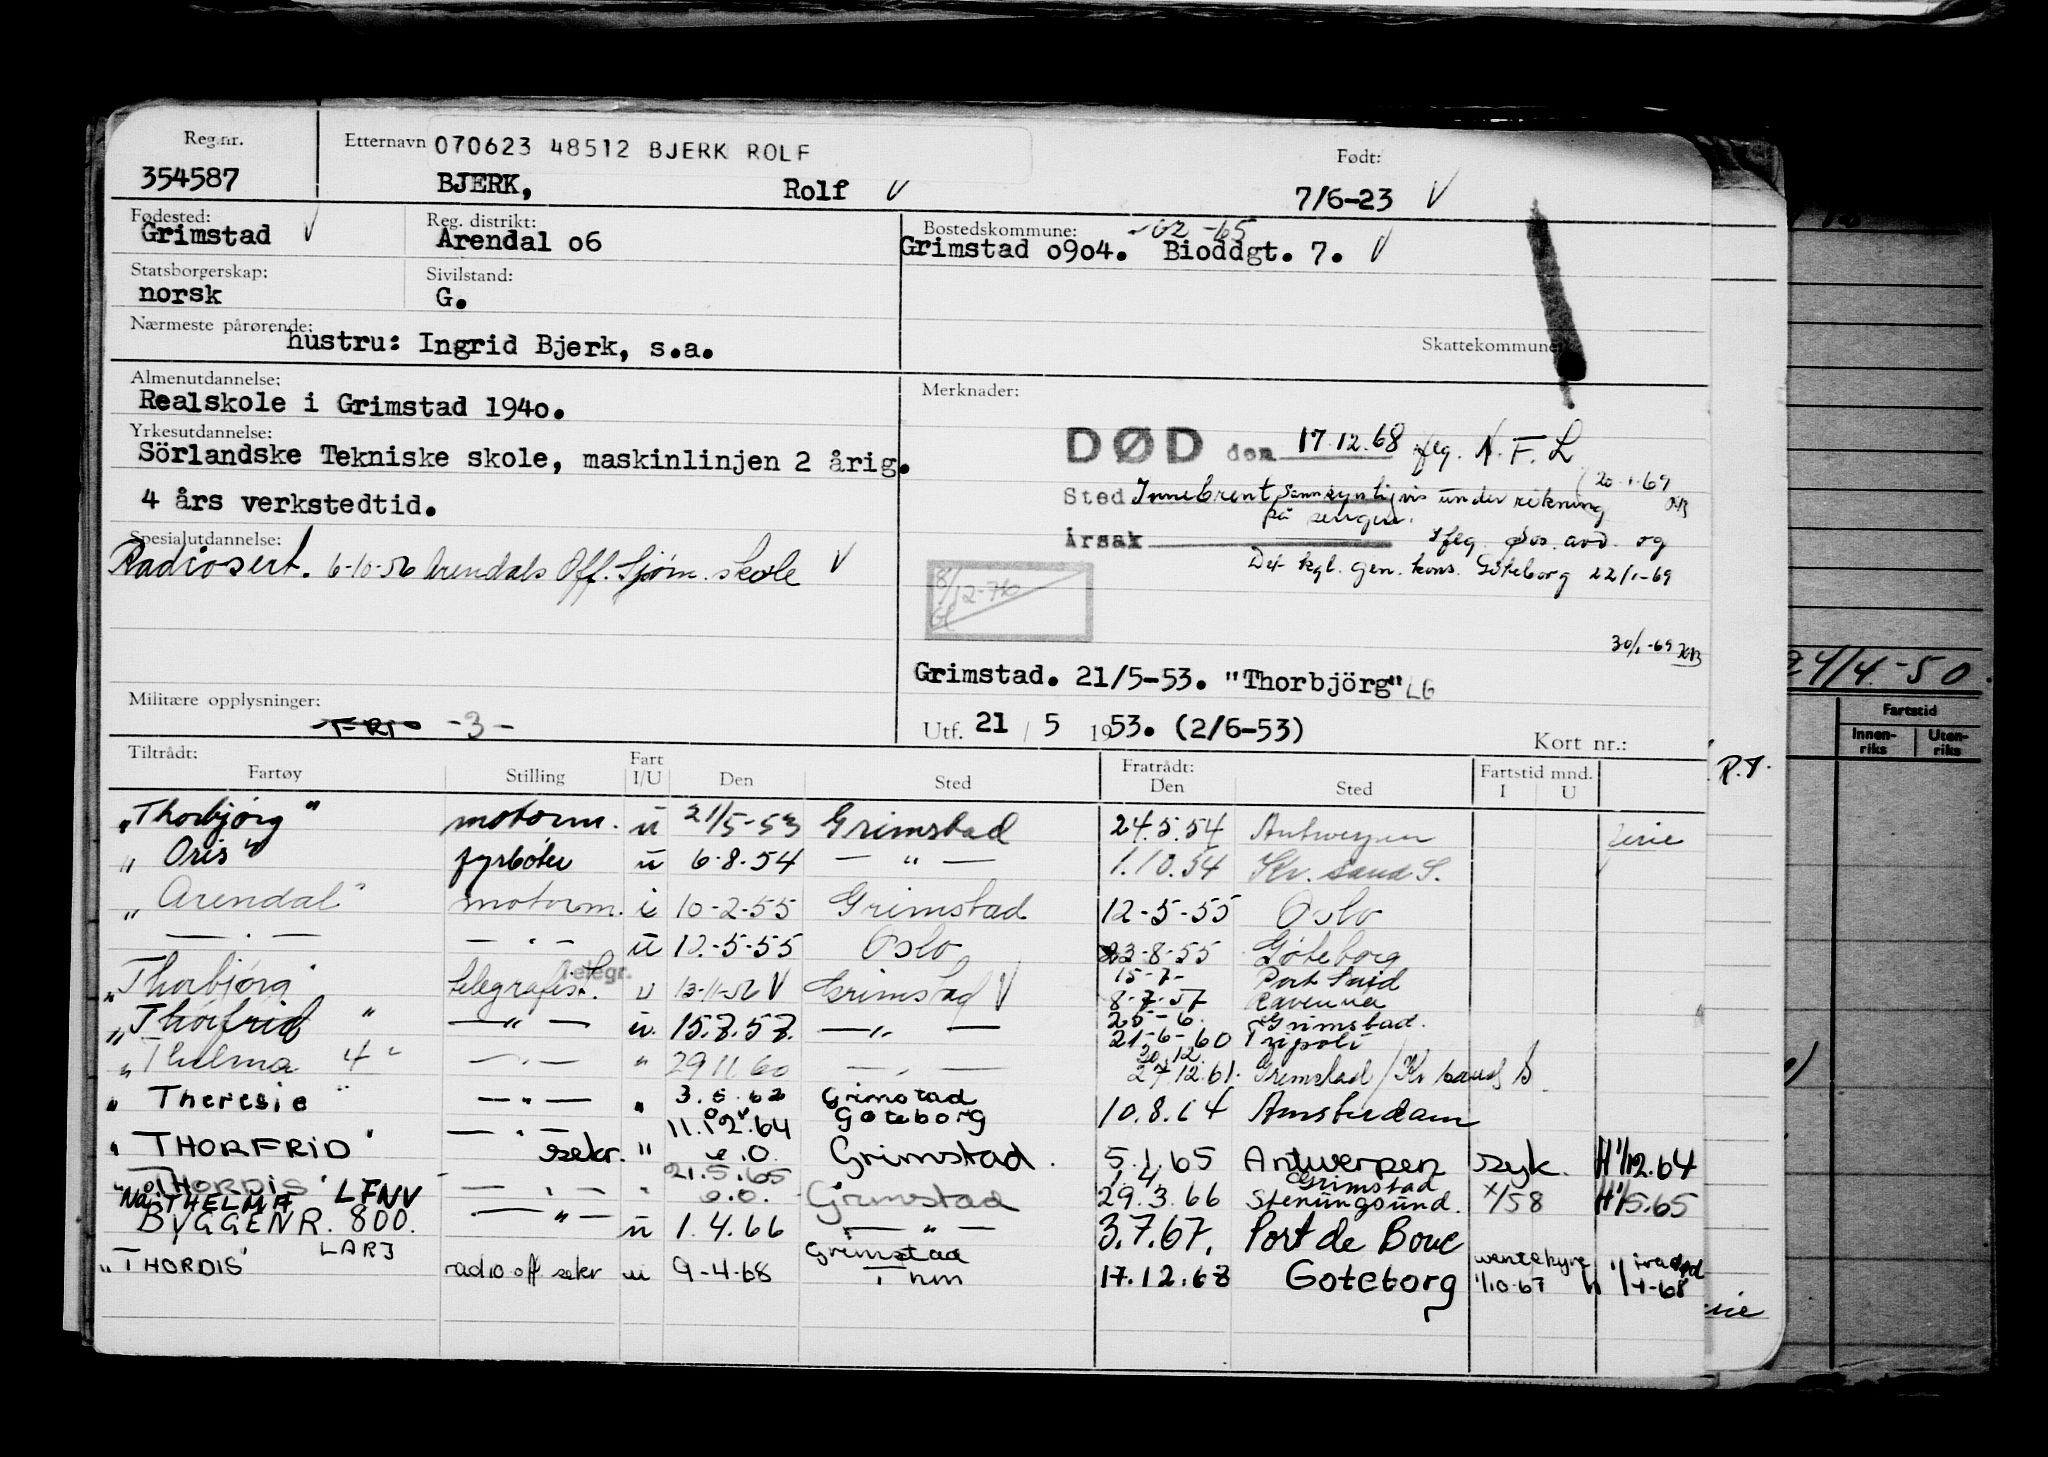 Reg.nr.
354587
Etternavn 070623 48512 BJERK ROLF
BJERK, Rolf V
Født:
7/6-23 V
Fødested:
Grimstad V
Reg. distrikt:
Arendal o6
Bostedskommune: -62-65
Grimstad o9o4. Bioddgt. 7. V
Statsborgerskap:
norsk
Sivilstand:
G.
Nærmeste pårørende:
hustru: Ingrid Bjerk, s.a.
Skattekommune
Almenutdannelse:
Realskole i Grimstad 194o.
Yrkesutdannelse:
Sörlandske Tekniske skole, maskinlinjen 2 årig.
4 års verkstedtid.
Spesialutdannelse:
Radiosert. 6-10-56 Arendals Off. Sjøm. skole V
Merknader:
DØD den 17.12.68 iflg. N.F.L
20-1-69
Sted Innebrent sannsynligvis under røkning
på sengen.
årsak Iflg. Sos. avd. og
Det kgl. gen. kons. Göteborg 22/1-69
8/12-70
30/1-69
Grimstad. 21/5-53. "Thorbjörg" LG
Militære opplysninger:
FRI -3-
Utf. 21 / 5 1953. (2/6-53)
Kort nr.:
Tiltrådt:
Fartøy Stilling Fart I/U Den Sted
Fratrådt:
Den Sted Fartstid mnd. I U
"Thorbjörg" motorm. u 21/5-53 Grimstad 24.5.54 Antwerpen ferie
"Oris" fyrbøter u 6.8.54 — " — 1.10.54 Kr. sand S.
"Arendal" motorm. i 10-2-55 Grimstad 12-5-55 Oslo
— . — — . — u 12-5-55 Oslo 23-8-55 Göteborg
"Thorbjörg" telegrafist. Telegr. u 13-11-56 V Grimstad V 15-7- Port Said
8-7-57 Ravenna
"Thorfrid" — " — u. 15.8.58. — " — 25-6. Grimstad.
21-6-60 Tripoli
"Thelma" 4 — . — " 29.11.60 — . — 20.12.
27.12.61. Grimstad / Kr sand S
"Theresie" — " — " 3.5.62 Grimstad
11.12.64 Göteborg 10.8.64 Amsterdam
"THORFRID" — . — sekr. " e.o. Grimstad. 5.1.65 Antwerpen syk. H 1/12.64
"THORDIS" — . — " 21.5.65
e.o. Grimstad 1.4. Grimstad
29.3.66 Stenungsund. x/58 H 1/5.65
Nå: THELMA LFNV
BYGGENR. 800. — " — u 1.4.66 — " — 3.7.67. Port de Bouc
"THORDIS" LARJ radio off sekr u 9-4-68 Grimstad 17.12.68 Göteborg ventehyre 1/10-67 1/4-68
24/4-50.
Fartstid
Innen-riks Uten-riks